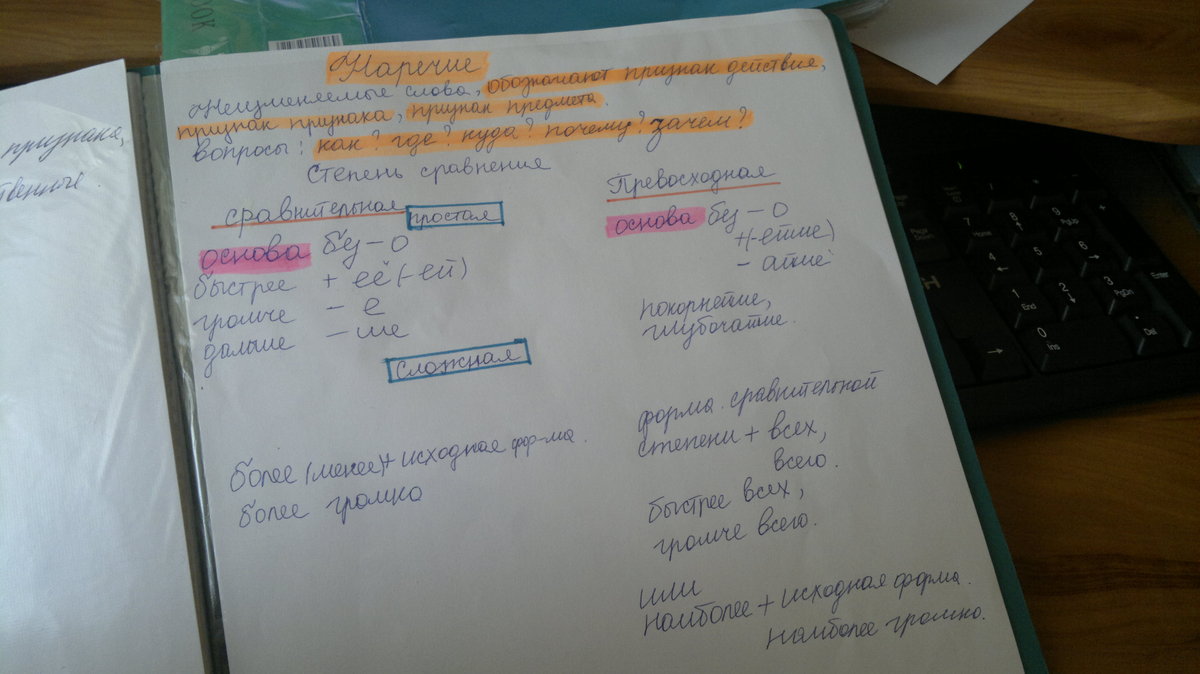 ROCK
признака,
твенные.
Наречие
Неизменяемые слова, обозначают признак действия,
признак признака, признак предмета.
вопросы: как? где? куда? почему? зачем?
Степень сравнения
сравнительная
простая
основа без – о
быстрее + ее (-ей)
громче – е
дальше – ше
сложная
более (менее) + исходная фор-ма.
более громко
Превосходная
основа без – о
+(-ейше)
- айше
покорнейше,
глубочайше.
форма сравнительной
степени + всех,
всего.
быстрее всех,
громче всего.
или
наиболее + исходная форма.
наиболее громко.